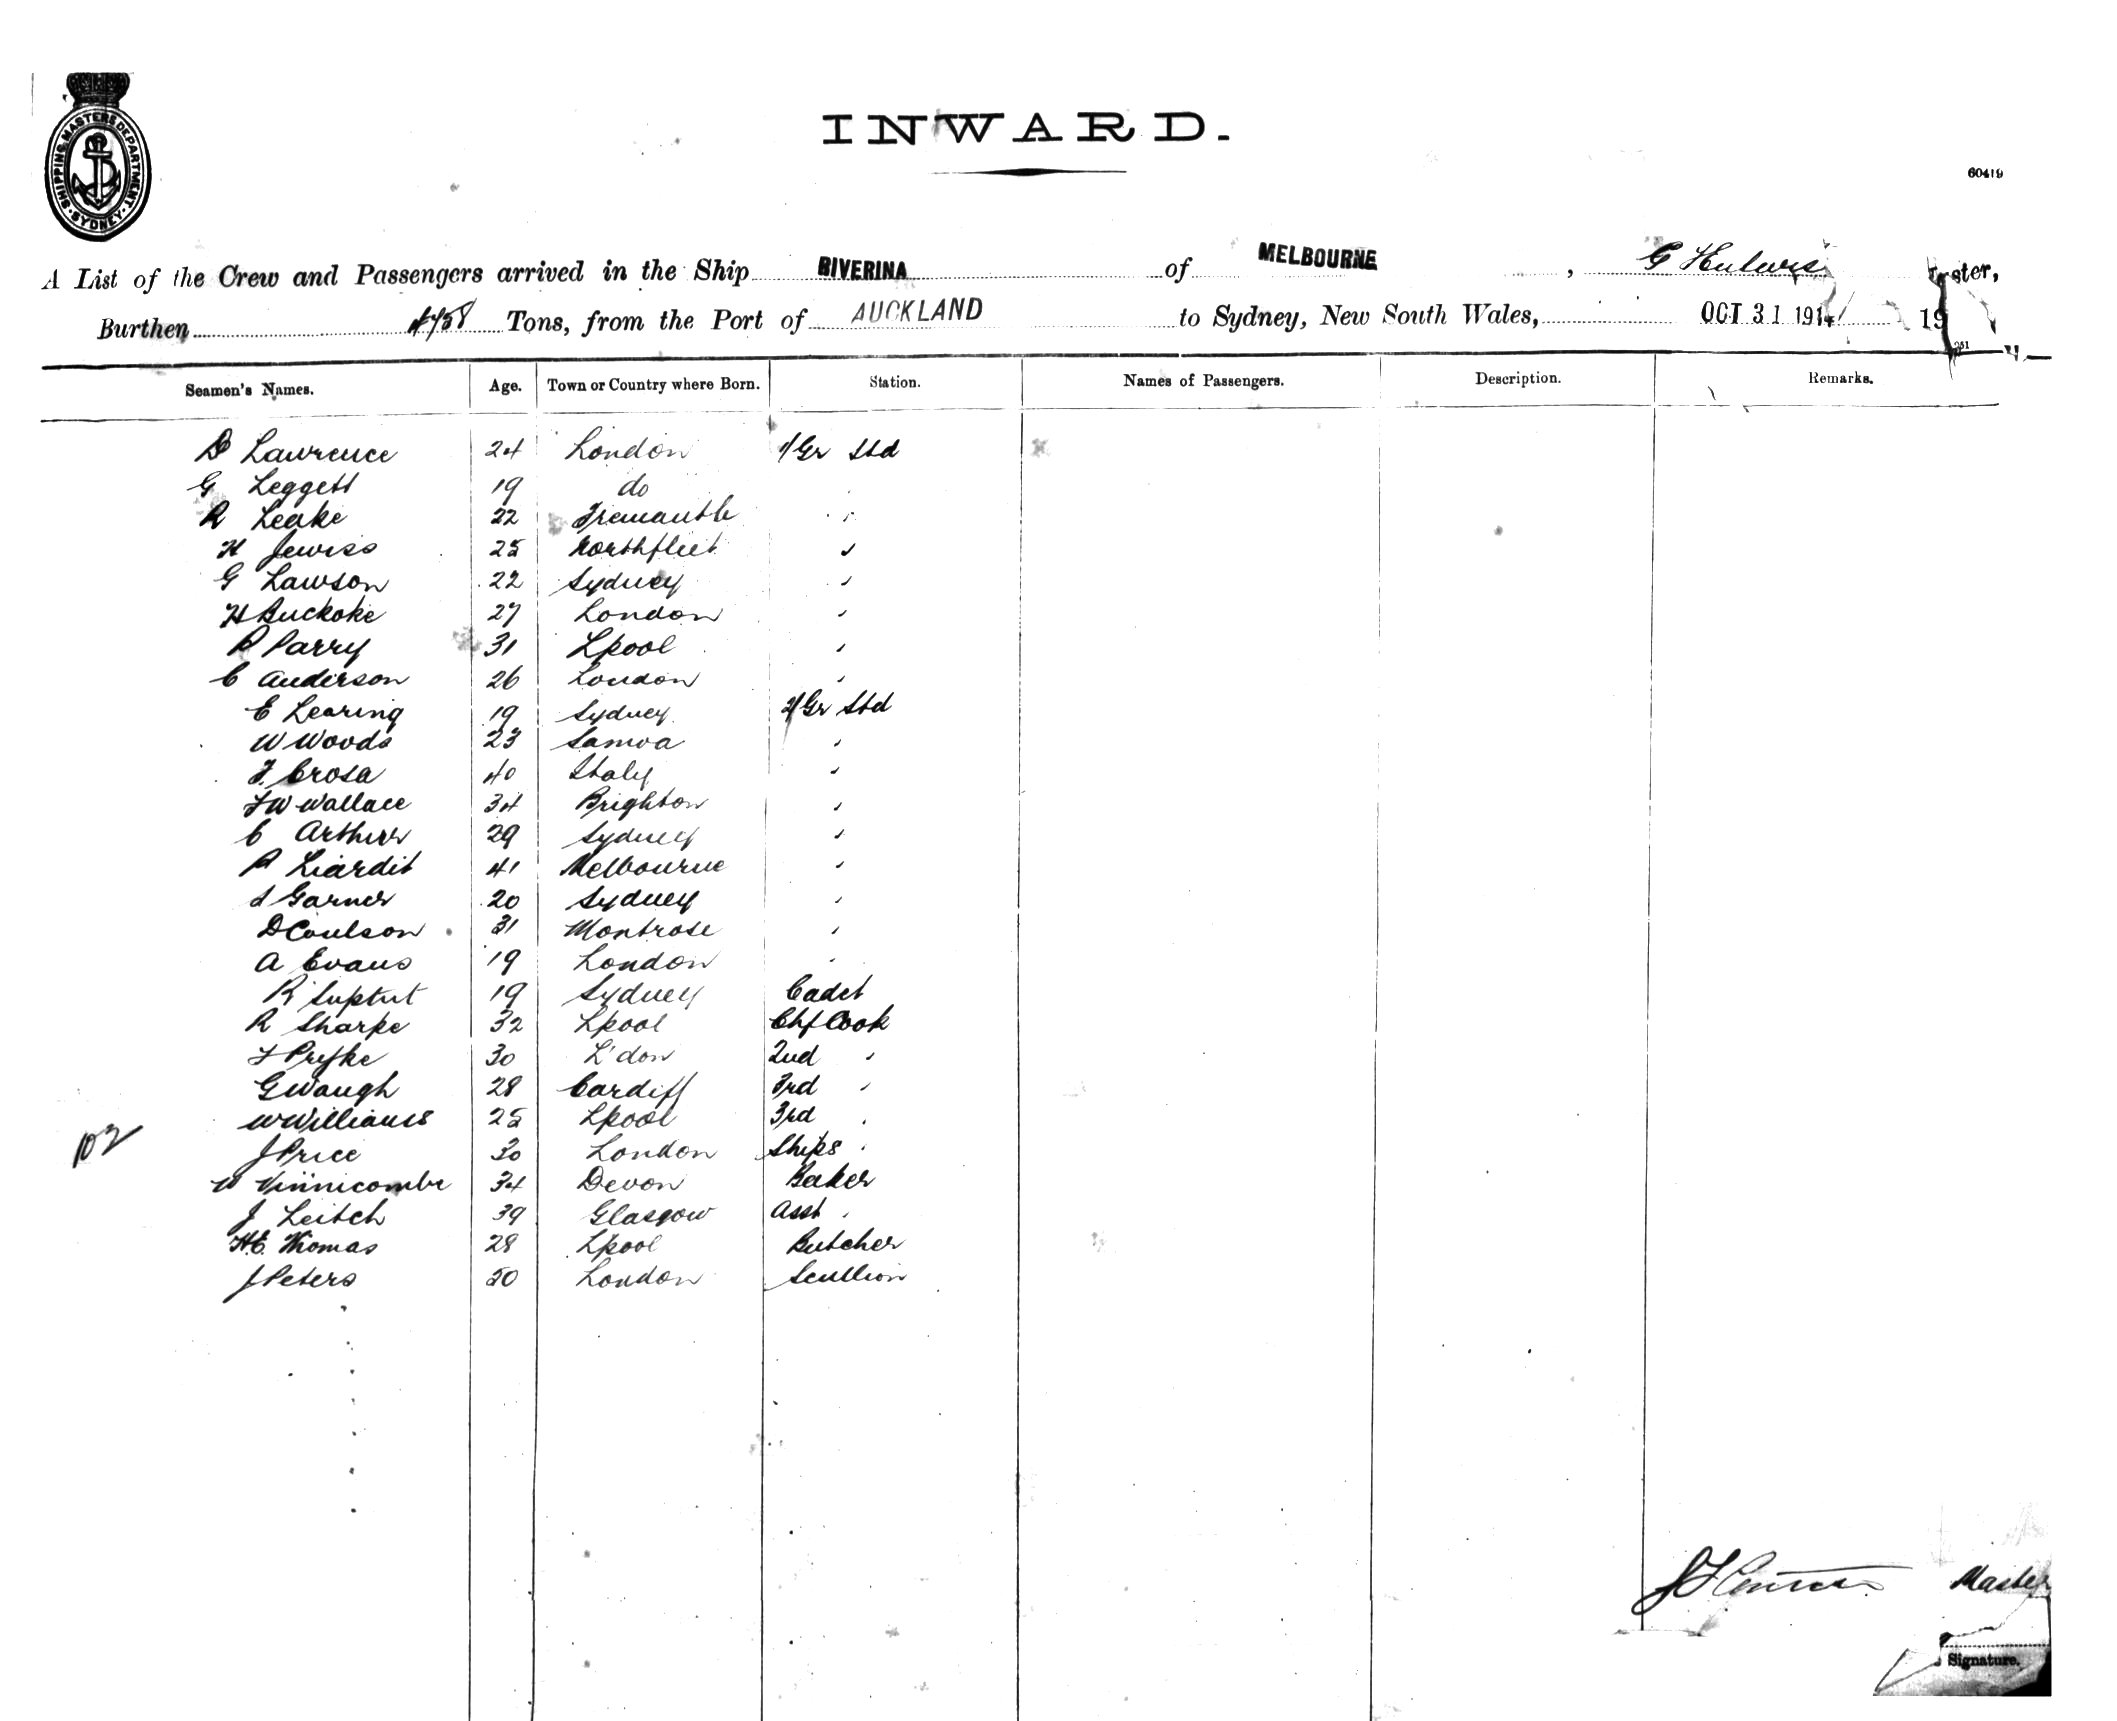 SHIPPING MASTERS DEPARTMENT
SYDNEY
INWARD.
60419
A List of the Crew and Passengers arrived in the Ship RIVERINA of MELBOURNE, G
Burthen 4758 Tons, from the Port of AUCKLAND to Sydney, New South Wales, OCT 31 1914 19
Seamen's Names. Age. Town or Country where Born. Station. Names of Passengers. Description. Remarks.
B Lawrence 24 London 1/Gr Std
G Leggett 19 do
R Leake 22 Fremantle "
H Jewiss 25 Northfleet "
G Lawson 22 Sydney "
H Buckoke 27 London "
P Parry 31 Lpool "
C Anderson 26 London "
E Learing 19 Sydney 2/Gr Std
W Woods 23 Samoa "
F. Crosa 40 Italy "
F W Wallace 34 Brighton "
C Arthur 29 Sydney "
P Liardit 41 Melbourne "
S Garner 20 Sydney "
D Coulson 31 Montrose "
A Evans 19 London "
R 19 Sydney Cadet
R Sharpe 32 Lpool Chf Cook
F Pryke 30 L'don 2nd "
G Waugh 28 Cardiff 3rd "
W Williams 25 Lpool 3rd "
102
J Price 30 London Ships "
W Vinnicombe 34 Devon Baker
J Leitch 39 Glasgow Asst "
H.C. Thomas 28 Lpool Butcher
J Peters 50 London Scullion
Master
Signature.